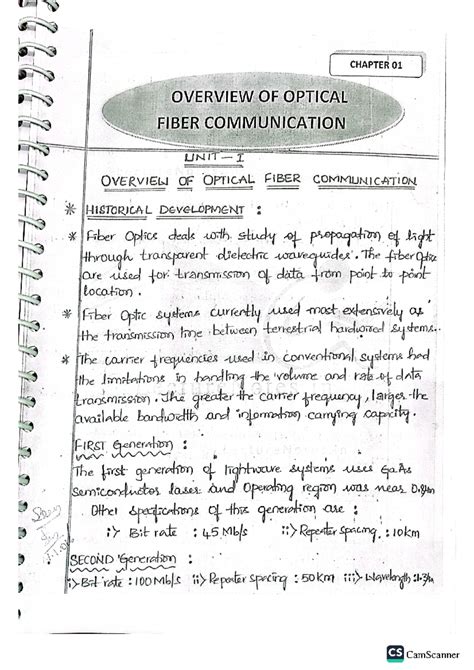 CHAPTER 01
OVERVIEW OF OPTICAL
FIBER COMMUNICATION
UNIT-I
OVERVIEW OF OPTICAL FIBER COMMUNICATION
* HISTORICAL DEVELOPMENT :
* Fiber Optics deals with study of propagation of light
through transparent dielectric waveguides. The fiber Optics
are used for transmission of data from point to point
location.
* Fiber Optic systems currently used most extensively as
the transmission line between terrestrial hardwired systems.
* The carrier frequencies used in conventional systems had
the limitations in handling the volume and rate of data
transmission. The greater the carrier frequency, larger the
available bandwidth and information carrying capacity.
FIRST Generation :
The first generation of lightwave systems uses GaAs
Semiconductor laser and Operating region was near 0.8μm
Other specifications of this generation are :
i:> Bit rate : 45 Mb/s ii:> Repeater spacing : 10km
SECOND Generation :
i:> Bit rate : 100 Mb/s ii:> Repeater spacing : 50 km iii:> Wavelength : 1.3μm
CS CamScanner